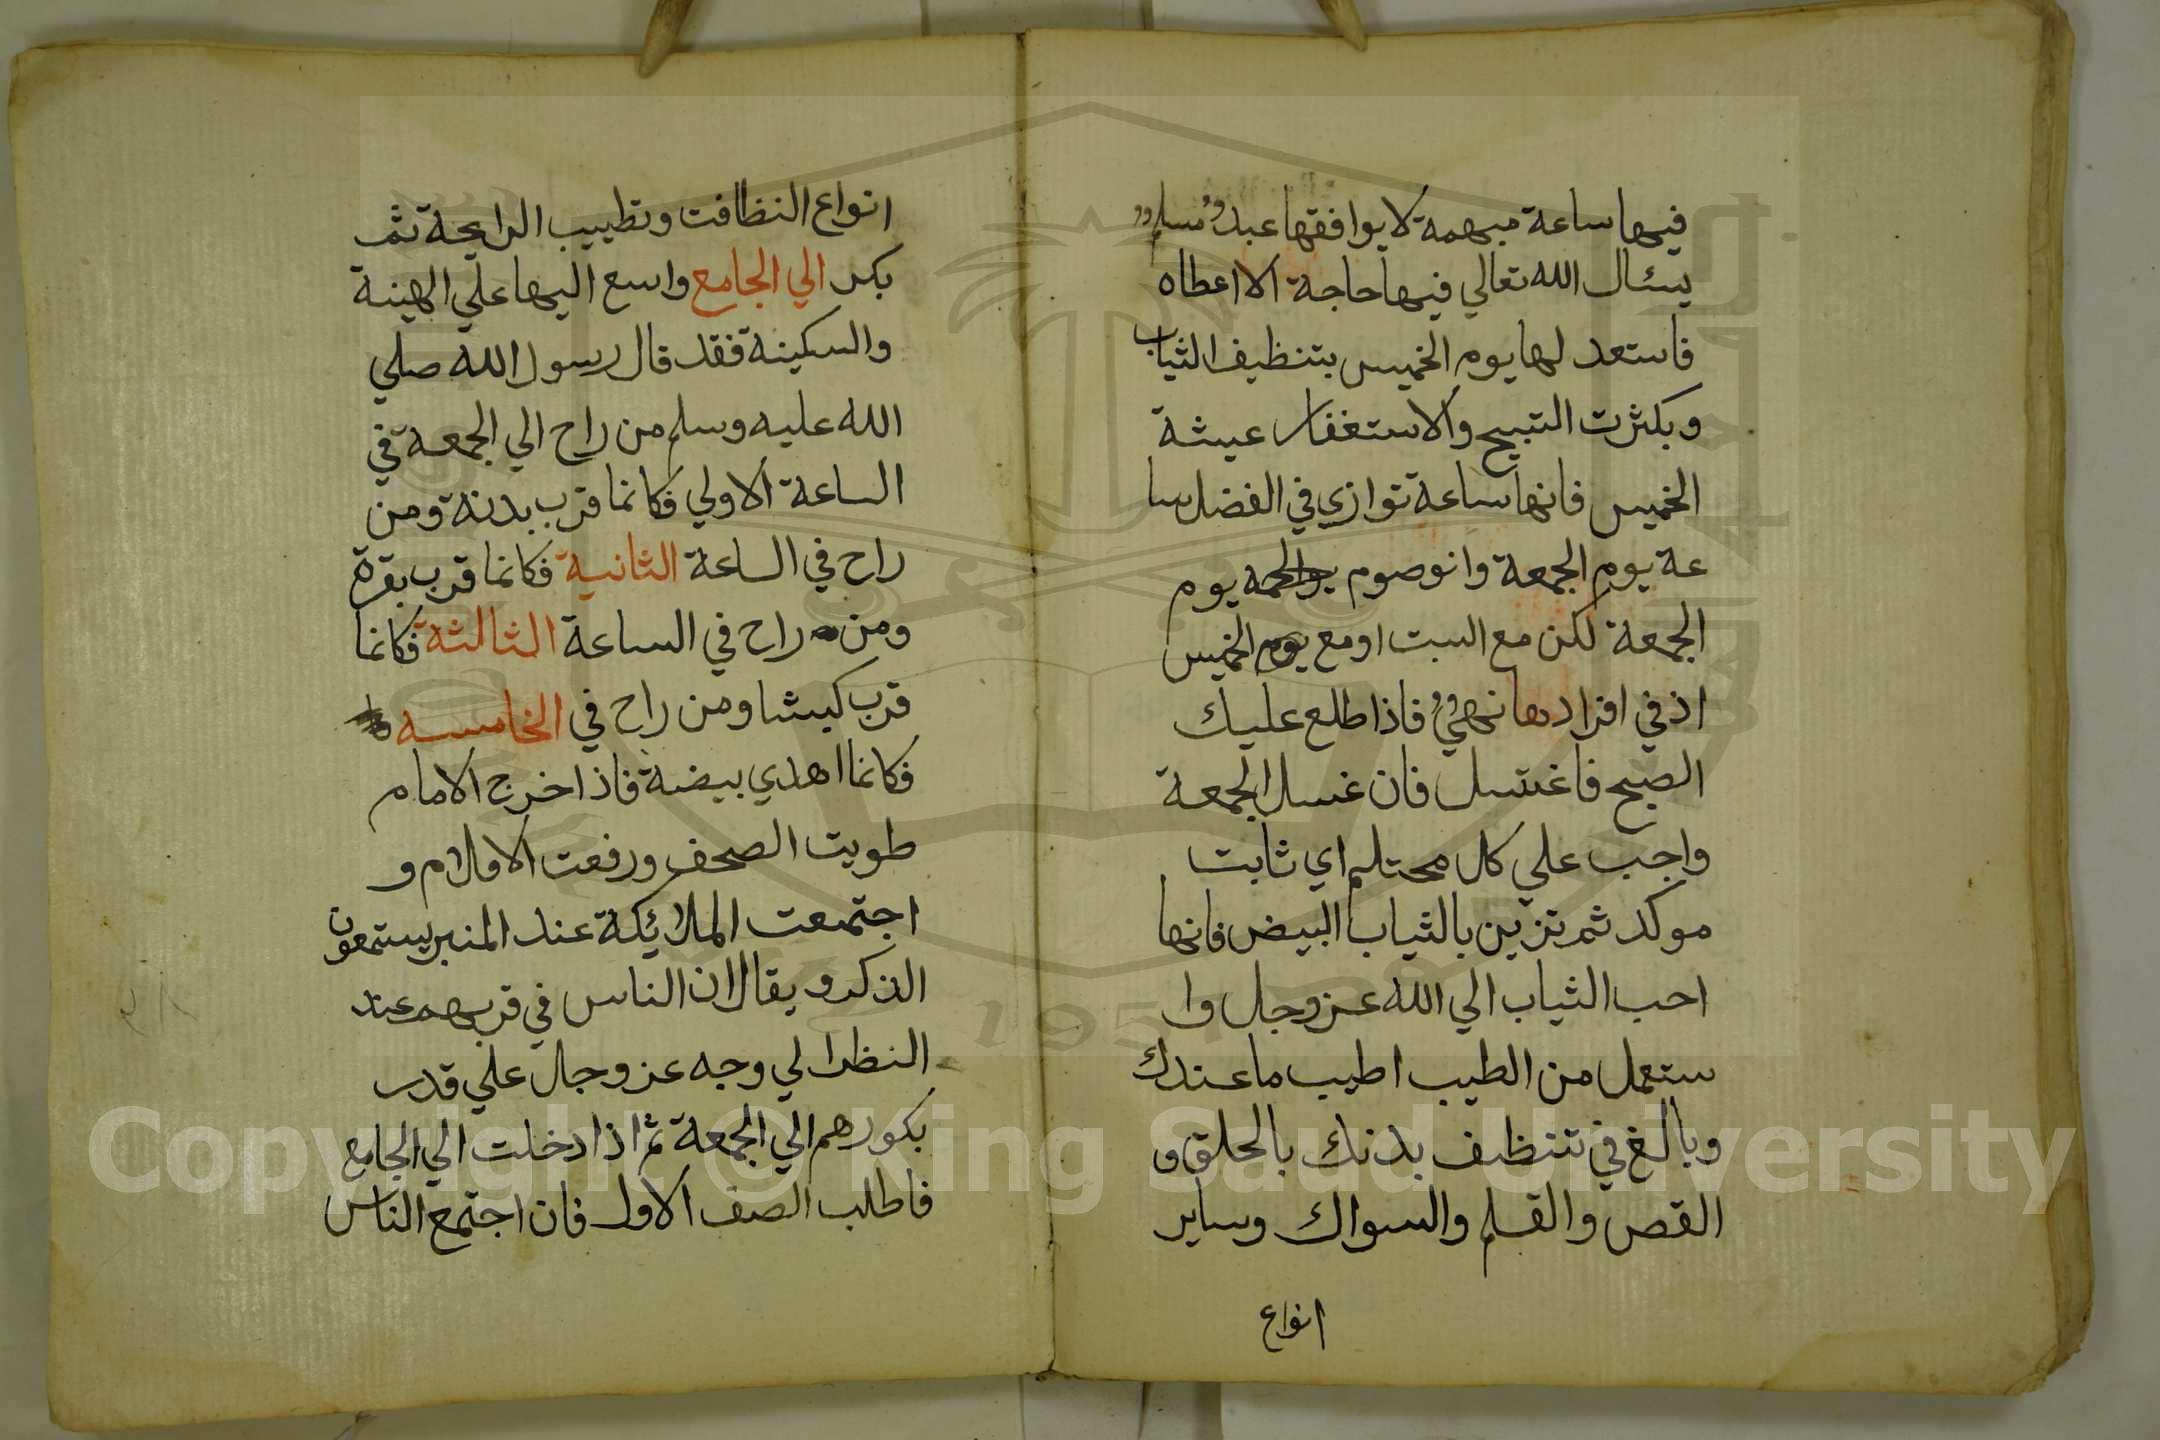 فيها ساعة مبهمة لا يوافقها عبد مسلم
يسئال الله تعالي فيها حاجة الا اعطاه
فاستعد لها يوم الخميس بتنظيف الثياب
وبكثرت التبيح والاستغفار عيشة
الخميس فانها ساعة توازي في الفضل سا
عة يوم الجمعة وانو صوم يوم
الجمعة لكن مع السبت او مع يوم الخميس
اذ في افرادها نهي فاذا طلع عليك
الصبح فاغتسل فان غسل الجمعة
واجب علي كل محتلم اي ثابت
موكد ثم تزين بالثياب البيض فانها
احب الثياب الي الله عز وجل وا
ستعمل من الطيب اطيب ما عندك
وبالغ في تنظيف بدنك بالحلق و
القص والقلم والسواك وساير
انواع
انواع النظافت وتطييب الرايحة ثم
بكر الي الجامع واسع اليها علي الهينة
والسكينة فقد قال رسول الله صلي
الله عليه وسلم من راح الي الجمعة في
الساعة الاولي فكانما قرب بدنة ومن
راح في الساعة الثانية فكانما قرب بقرة
ومن راح في الساعة الثالثة فكانما
قرب كبشا ومن راح في الخامسه
فكانما اهدي بيضة فاذا خرج الامام
طويت الصحف ورفعت الاقلام و
اجتمعت الملائكة عند المنبر يستمعون
الذكر ويقال ان الناس في قربهم عند
النظر الي وجه عز وجل علي قدر
بكورهم الي الجمعة ثم اذا دخلت الي الجامع
فاطلب الصف الاول فان اجتمع الناس
Copyright © King Saud University
1957